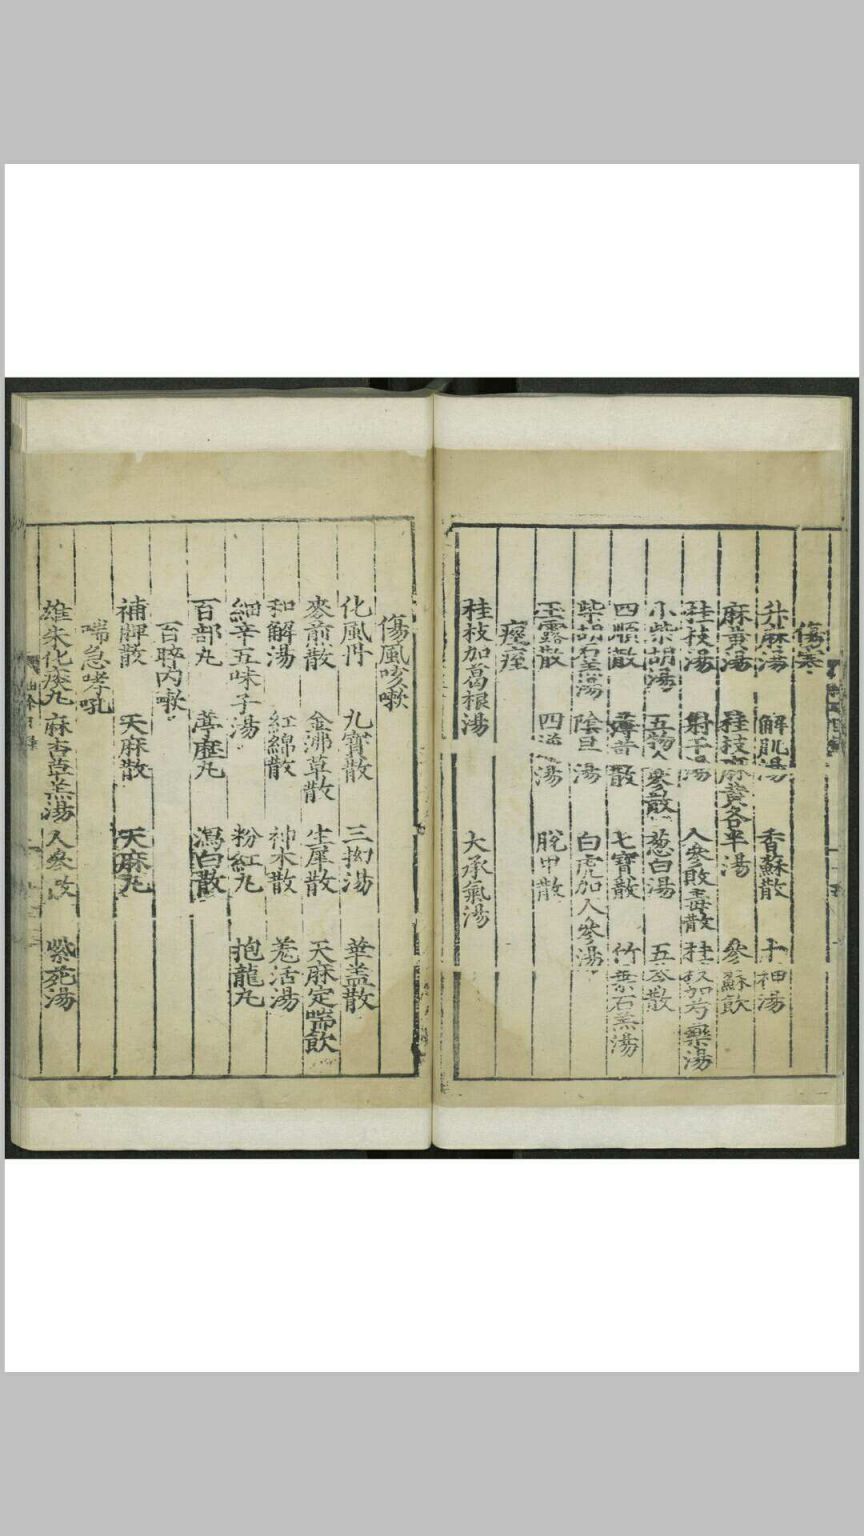 傷寒
升麻湯 解肌湯 香蘇散 十神湯
麻黃湯 桂枝麻黃各半湯 參蘇飲
桂枝湯 射干湯 人參敗毒散 桂枝加芍藥湯
小柴胡湯 五物人參散 葱白湯 五苓散
四順散 散 七寶散 竹葉石羔湯
柴胡石羔湯 陰旦湯 白虎加人參湯
玉露散 四 湯 脫甲散
痙痓
桂枝加葛根湯 大承氣湯
傷風咳嗽
化風丹 九寶散 三拗湯 華盖散
麥煎散 金沸草散 生犀散 天麻定喘飲
和解湯 紅綿散 神术散 羗活湯
細辛五味子湯 粉紅丸 抱龍丸
百部丸 葶藶丸 瀉白散
百晬內嗽
補脾散 天麻散 天麻丸
喘急哮吼
雄朱化痰丸 麻杏草羔湯 人參 散 紫苑湯